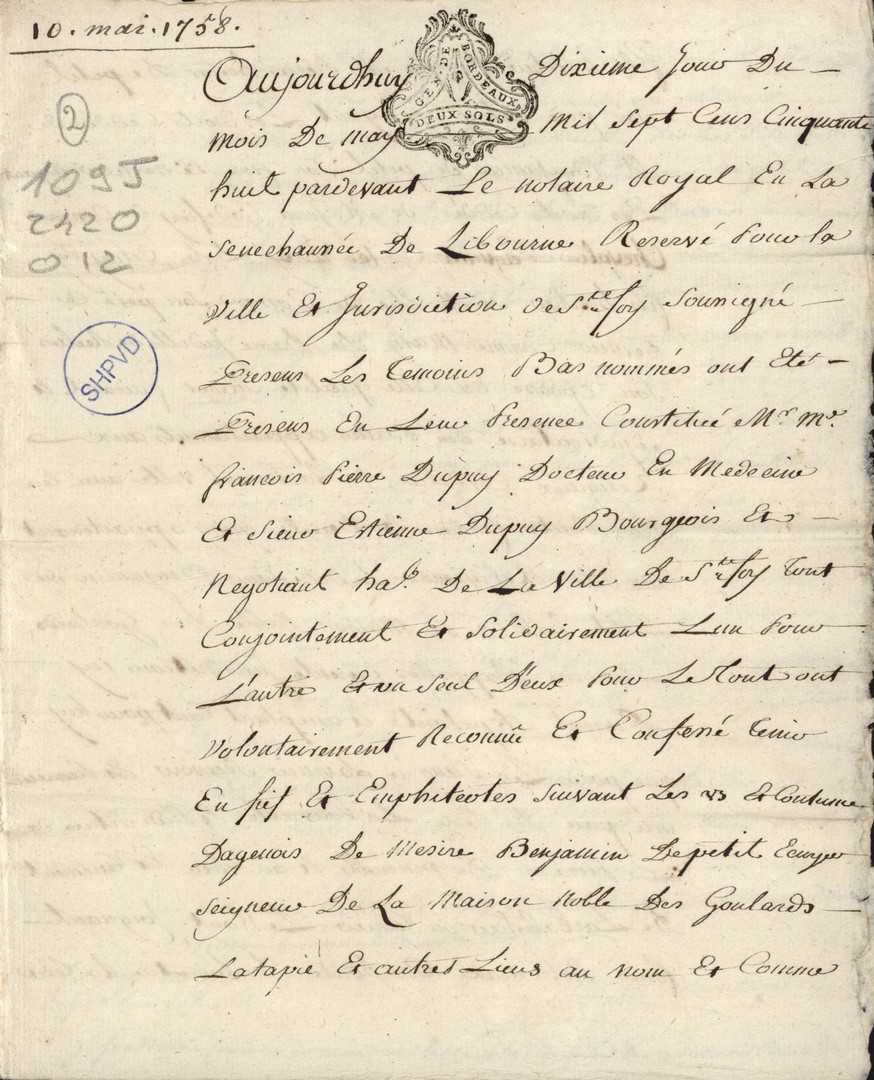 10. mai. 1758.
GEN. DE BORDEAUX
DEUX SOLS
2
109J
2420
012
SHPVD
Aujourdhuy Dixieme Jour Du
mois De may Mil Sept Cens Cinquante
huit pardevant Le notaire Royal En La
Senechaussée De Libourne Reservé Pour la
Ville Et Jurisdiction de Ste foy Soussigné
Presens Les Temoins Bas nommés ont Eté
Presens En Leur Presence Constitué Mr. Me.
francois Pierre Dupuy Docteur En Medecine
Et Sieur Estienne Dupuy Bourgeois Et
Negotiant hab. De La Ville De Ste foy Tout
Conjointement Et Solidairement Lun Pour
L'autre Et un Seul D'eux Pour Le Tout ont
Volontairement Reconnû Et Confessé Tenir
En fief Et Emphiteotes Suivant Les us Et Coutume
Dagenois De Mesire Benjamin Depetit Ecuyer
Seigneur De La Maison Noble Des Goulards
Latapie Et autres Lieus au nom Et Comme